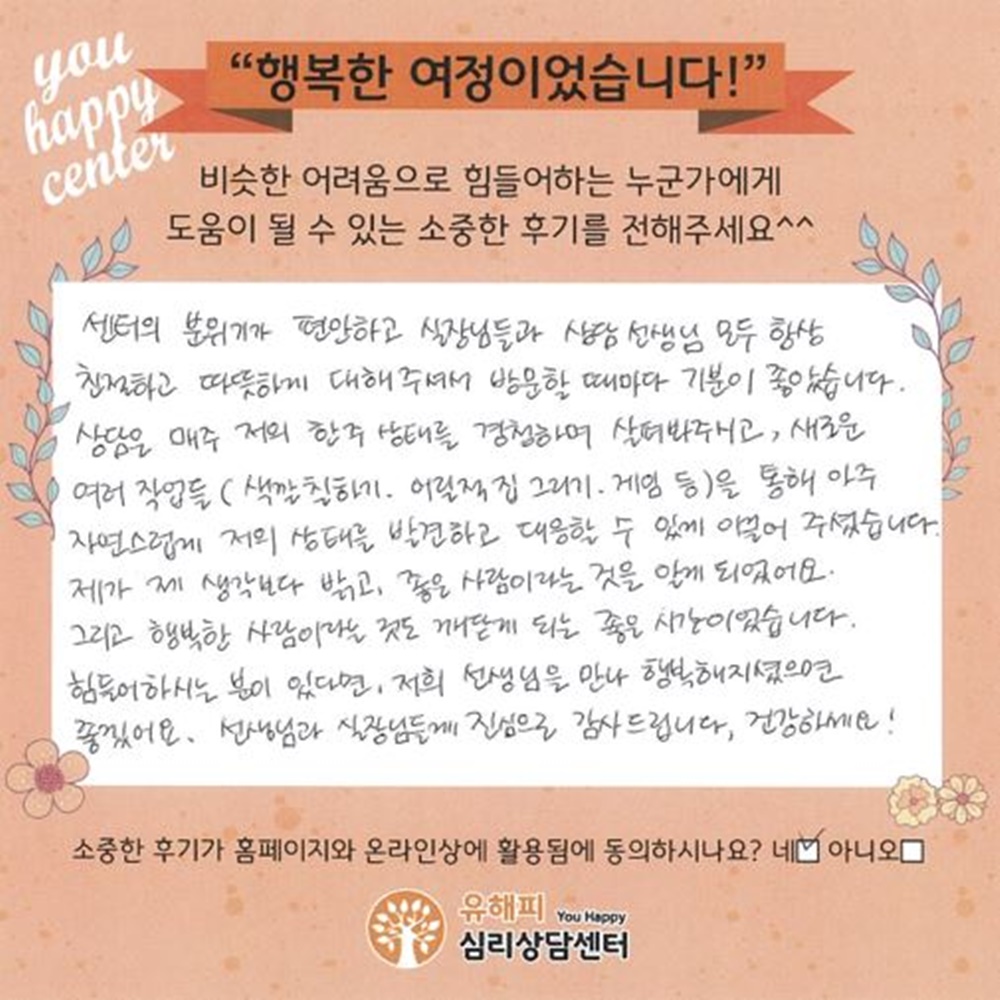 you
happy
center
“행복한 여정이었습니다!”
비슷한 어려움으로 힘들어하는 누군가에게
도움이 될 수 있는 소중한 후기를 전해주세요^^
센터의 분위기가 편안하고 실장님들과 상담 선생님 모두 항상
친절하고 따뜻하게 대해주셔서 방문할 때마다 기분이 좋았습니다.
상담은 매주 저의 한주 상태를 경청하며 살펴봐주시고, 새로운
여러 작업들 (색깔 칠하기. 어릴적 집 그리기. 게임 등)을 통해 아주
자연스럽게 저의 상태를 발견하고 대응할 수 있게 이끌어 주셨습니다.
제가 제 생각보다 밝고, 좋은 사람이라는 것을 알게 되었어요.
그리고 행복한 사람이라는 것도 깨닫게 되는 좋은 시간이었습니다.
힘들어하시는 분이 있다면, 저희 선생님을 만나 행복해지셨으면
좋겠어요. 선생님과 실장님들께 진심으로 감사드립니다, 건강하세요!
소중한 후기가 홈페이지와 온라인상에 활용됨에 동의하시나요? 네 아니오
유해피 You Happy
심리상담센터